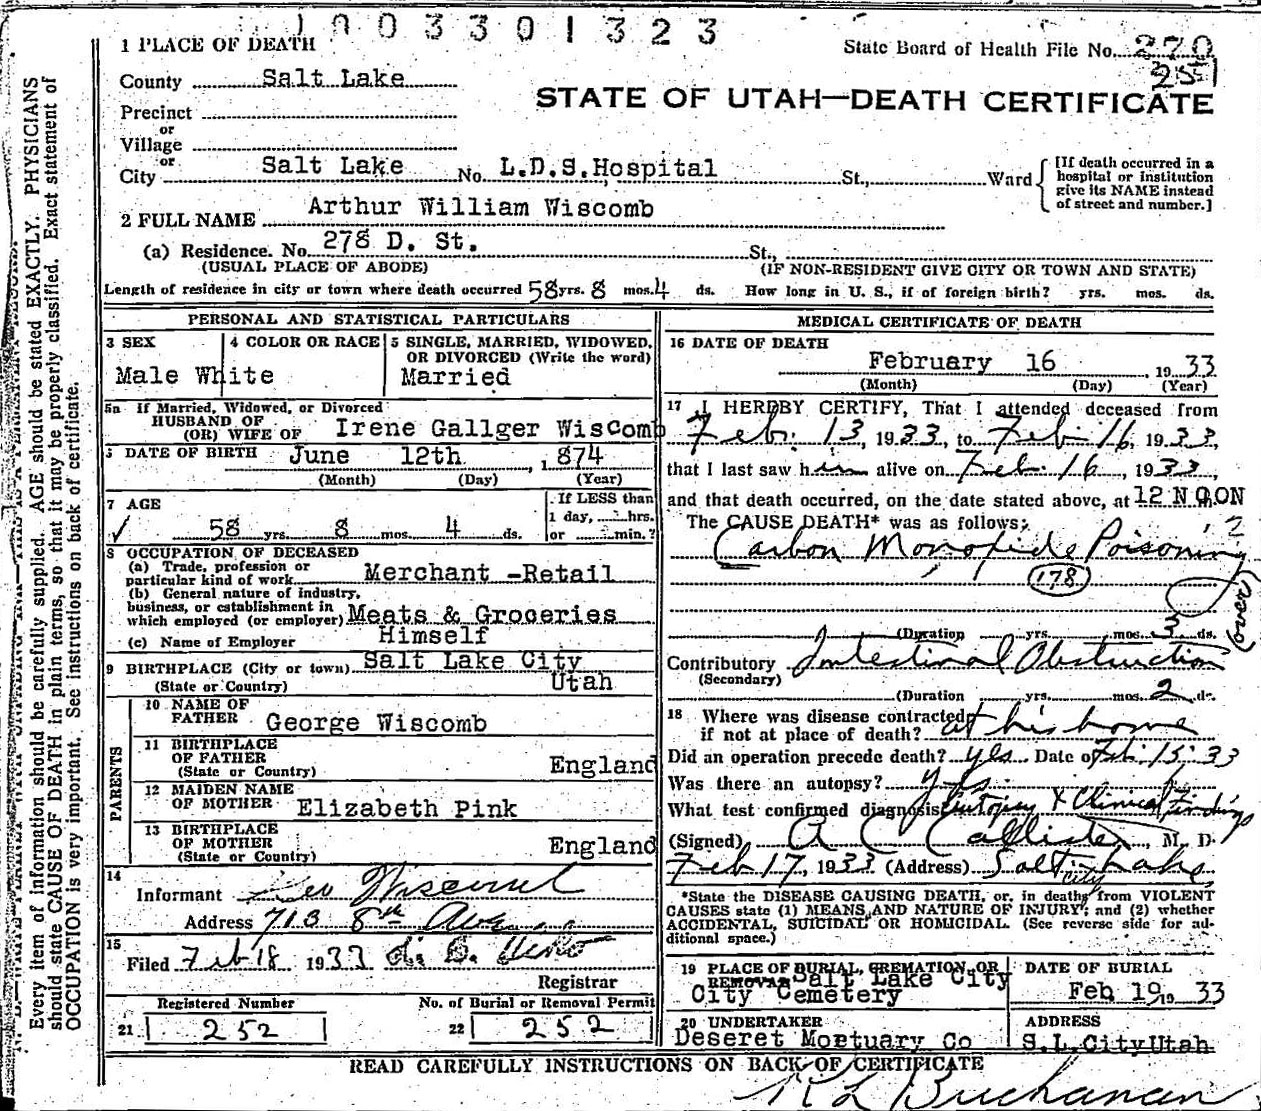 1003301323
1 PLACE OF DEATH
State Board of Health File No. 270
251
County Salt Lake
STATE OF UTAH—DEATH CERTIFICATE
Precinct
or
Village
or
City Salt Lake No. L.D.S. Hospital St., Ward
[If death occurred in a
hospital or institution
give its NAME instead
of street and number.]
2 FULL NAME Arthur William Wiscomb
(a) Residence. No. 278 D. St. St.,
(USUAL PLACE OF ABODE) (IF NON-RESIDENT GIVE CITY OR TOWN AND STATE)
Length of residence in city or town where death occurred 58 yrs. 8 mos. 4 ds. How long in U. S., if of foreign birth? yrs. mos. ds.
PERSONAL AND STATISTICAL PARTICULARS
3 SEX
Male
4 COLOR OR RACE
White
5 SINGLE, MARRIED, WIDOWED,
OR DIVORCED (Write the word)
Married
5a If Married, Widowed, or Divorced
HUSBAND OF
(OR) WIFE OF Irene Gallger Wiscomb
6 DATE OF BIRTH June 12th, 1874
(Month) (Day) (Year)
7 AGE
58 yrs. 8 mos. 4 ds.
If LESS than
1 day, hrs.
or min.?
8 OCCUPATION OF DECEASED
(a) Trade, profession or
particular kind of work Merchant -Retail
(b) General nature of industry,
business, or establishment in
which employed (or employer) Meats & Groceries
(c) Name of Employer Himself
9 BIRTHPLACE (City or town) Salt Lake City
(State or Country) Utah
PARENTS
10 NAME OF
FATHER George Wiscomb
11 BIRTHPLACE
OF FATHER
(State or Country) England
12 MAIDEN NAME
OF MOTHER Elizabeth Pink
13 BIRTHPLACE
OF MOTHER
(State or Country) England
14
Informant Geo Wiscomb
Address 713 8th Ave
15
Filed Feb 18 1933
Registrar
Registered Number
21 252
No. of Burial or Removal Permit
22 252
MEDICAL CERTIFICATE OF DEATH
16 DATE OF DEATH
February 16, 1933
(Month) (Day) (Year)
17 I HEREBY CERTIFY, That I attended deceased from
Feb. 13, 1933, to Feb. 16, 1933,
that I last saw him alive on Feb. 16, 1933,
and that death occurred, on the date stated above, at 12 NOON m.
The CAUSE DEATH* was as follows:
Carbon Monoxide Poisoning
178
(over)
(Duration yrs. mos. 3 ds.
Contributory Intestinal Obstruction
(Secondary)
(Duration yrs. mos. 2 ds.
18 Where was disease contracted
if not at place of death? at his home
Did an operation precede death? yes Date of Feb. 15, 33
Was there an autopsy? yes
What test confirmed diagnosis Autopsy & Clinical Findings
(Signed) A C Callister, M. D.
Feb 17, 1933 (Address) Salt Lake
City
*State the DISEASE CAUSING DEATH, or, in deaths from VIOLENT
CAUSES state (1) MEANS AND NATURE OF INJURY; and (2) whether
ACCIDENTAL, SUICIDAL OR HOMICIDAL. (See reverse side for ad-
ditional space.)
19 PLACE OF BURIAL, CREMATION, OR
REMOVAL Salt Lake City
City Cemetery
DATE OF BURIAL
Feb 19, 19 33
20 UNDERTAKER
Deseret Mortuary Co
ADDRESS
S.L.City Utah
READ CAREFULLY INSTRUCTIONS ON BACK OF CERTIFICATE
R L Buchanan
Every item of information should be carefully supplied. AGE should be stated EXACTLY. PHYSICIANS
should state CAUSE OF DEATH in plain terms, so that it may be properly classified. Exact statement of
OCCUPATION is very important. See instructions on back of certificate.